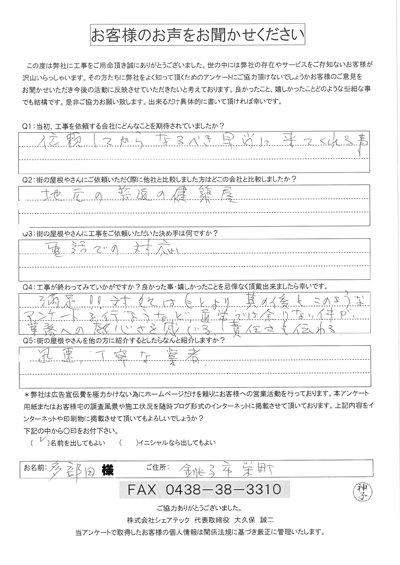 お客様のお声をお聞かせください
この度は弊社に工事をご用命頂き誠にありがとうございました。世の中には弊社の存在やサービスをご存知ないお客様が
沢山いらっしゃいます。その方たちに弊社をよく知って頂くためのアンケートにご協力頂けないでしょうかお客様のご意見を
お聞かせいただき今後の活動に反映させていただきたいと考えております。良かったこと、嬉しかったことどのような些細な事
でも結構です。是非ご協力お願い致します。出来るだけ具体的に書いて頂ければ幸いです。
Q1:当初、工事を依頼する会社にどんなことを期待されていましたか?
依頼してからなるべき早岩に来てくれる事
Q2:街の屋根やさんにご依頼いただく際に他社と比較しました方はどこの会社と比較しましたか?
地元の普通の建築屋
Q3:街の屋根やさんに工事をご依頼いただいた決め手は何ですか?
電話での対応
Q4:工事が終わってみていかがですか?良かった事・嬉しかったことを忌憚なく頂戴出来ましたら幸いです。
満足!!対応はもとより其の後もこのような
アンケートを行なうなど、通常では余りない件が
業務への熱心さを感じる 責任さも伝わる
Q5:街の屋根やさんを他の方に紹介するとしたらなんと紹介しますか?
迅速、丁寧な業者
*弊社は広告宣伝費を極力かけない為にホームページだけを頼りにお客様への営業活動を行っております。本アンケート
用紙またはお客様宅の調査風景や施工状況を随時ブログ形式のインターネットに掲載させて頂いております。上記内容をイ
ンターネットや印刷物に掲載させて頂いてもよろしいでしょうか?
下記の中から○印をお付下さい。
(✓)名前を出してもよい ( )イニシャルなら出してもよい
お名前: 多部田 様 ご住所: 銚子市栄町
FAX 0438-38-3310
ご協力ありがとうございました。
株式会社シェアテック 代表取締役 大久保 誠二
当アンケートで取得したお客様の個人情報は関係法規に基づき厳正に管理いたします。